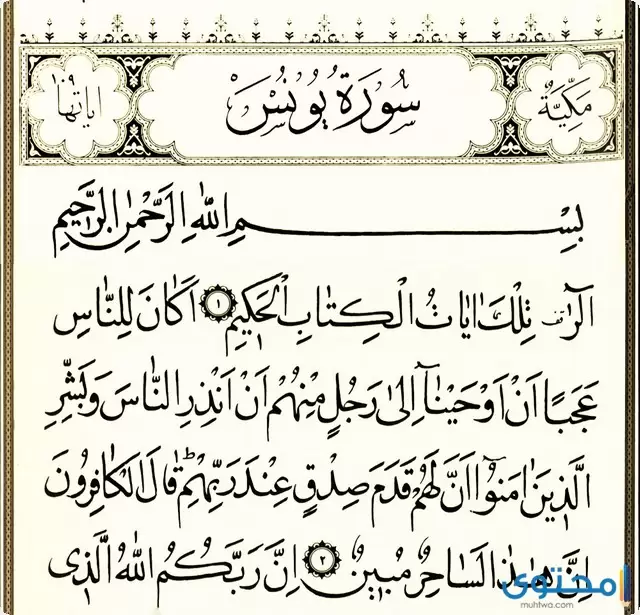 مَكِّيَّةٌ سُورَةُ يُونُسَ اٰيَاتُهَا ١٠٩
بِسْمِ اللّٰهِ الرَّحْمٰنِ الرَّحِيمِ
الٓرٰ تِلْكَ اٰيَاتُ الْكِتَابِ الْحَكِيمِ ١ اَكَانَ لِلنَّاسِ
عَجَبًا اَنْ اَوْحَيْنَٓا اِلٰى رَجُلٍ مِنْهُمْ اَنْ اَنْذِرِ النَّاسَ وَبَشِّرِ
الَّذِينَ اٰمَنُٓوا اَنَّ لَهُمْ قَدَمَ صِدْقٍ عِنْدَ رَبِّهِمْۜ قَالَ الْكَافِرُونَ
اِنَّ هٰذَا لَسَاحِرٌ مُبِينٌ ٢ اِنَّ رَبَّكُمُ اللّٰهُ الَّذِى
محتوى
muhtwa.com